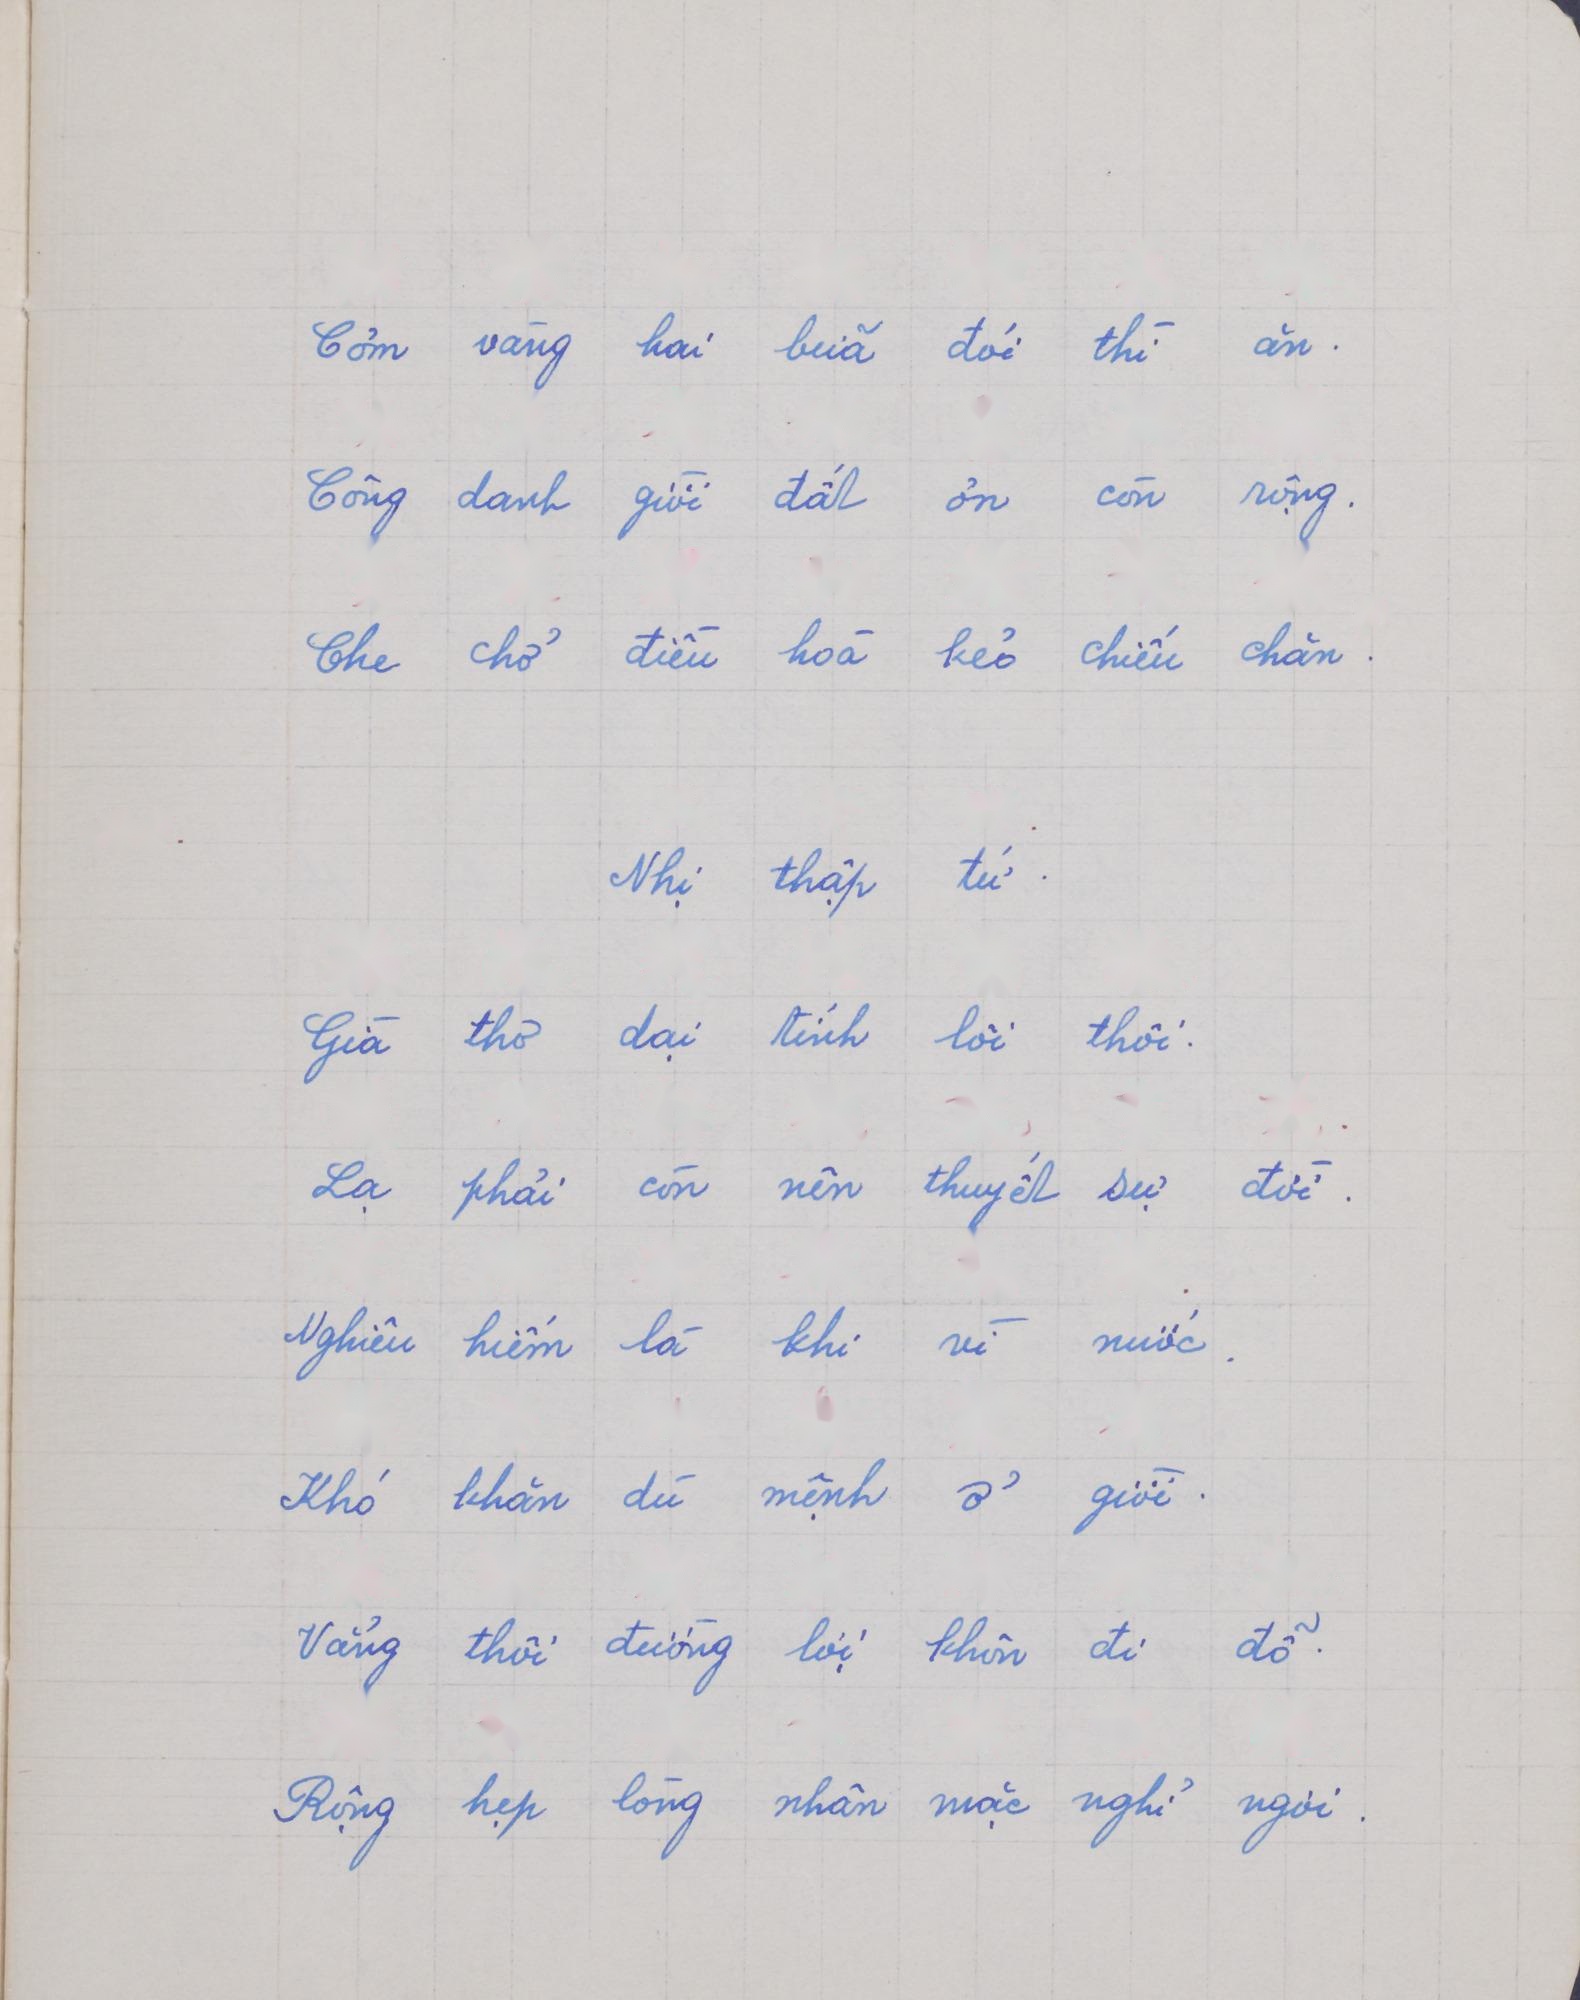 Cơm vàng hai buã đói thì ăn.
Công danh giời đất ơn còn rộng.
Che chở điều hoà kẻo chiếu chăn.
Nhị thập tứ.
Già thờ dại tính lôi thôi.
Lạ phải còn nên thuyết sự đời.
Nghiêu hiếm là khi vì nước.
Khó khăn dù mệnh ở giời.
Vẳng thôi đường lợi khôn đi đỗ.
Rộng hẹp lòng nhân mặc nghỉ ngơi.